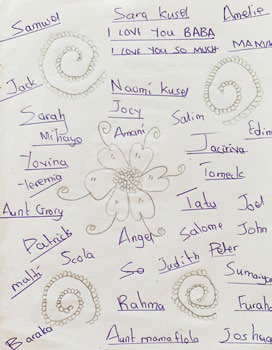 Samwel
Sara Kusel
Amelie
I LOVE YOU BABA
I LOVE YOU SO MUCH
MANUK
Jack
Naomi Kusel
Jocy
Salim
Sarah
Mihayo
Amani
Edim
Jaciriya
Yovina
Jeremia
Tomerk
Aunt Grory
Tatu
Joel
Patrick
Angel
Salome
John
Scola
Judith
Peter
So
Sumaiya
Rahma
Furah
Baraka
Aunt mama flola
Joshua